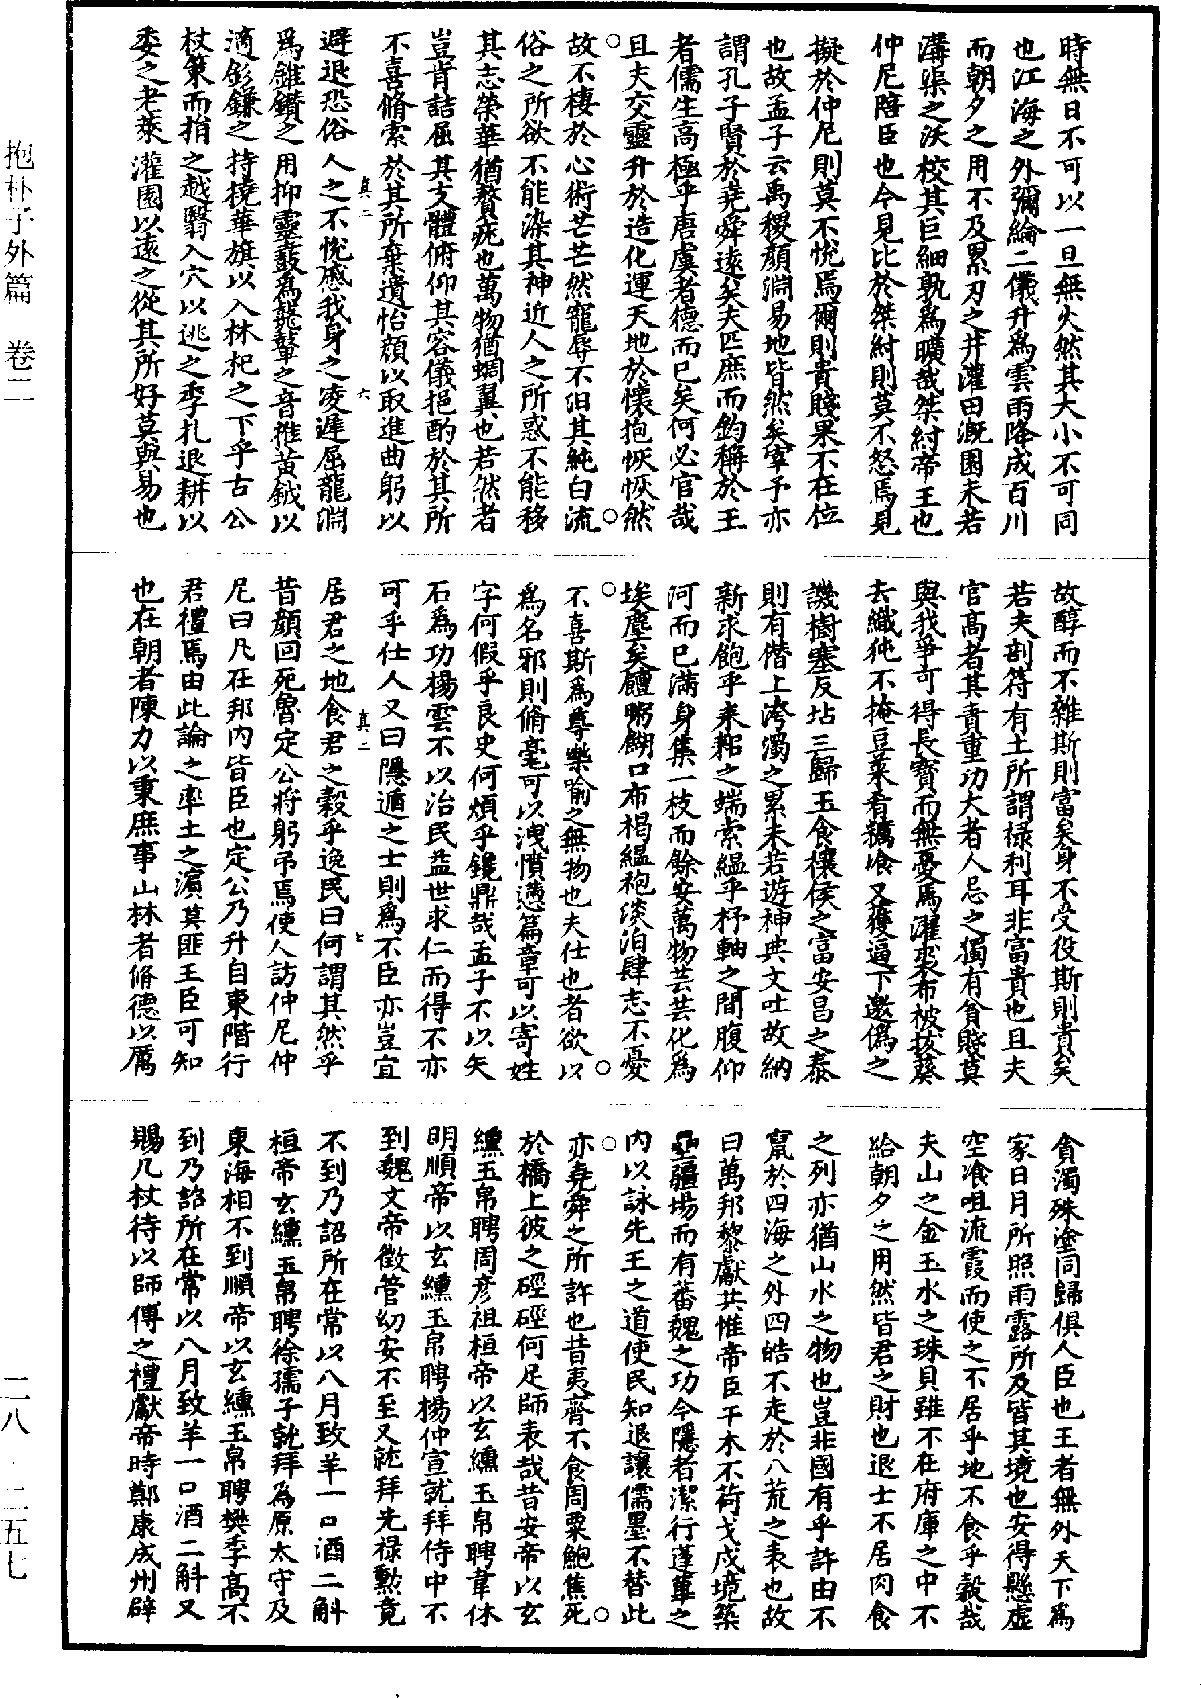 時無日不可以一旦無火然其大小不可同
也江海之外彌綸二儀升為雲雨降成百川
而朝夕之用不及累刃之井灌田溉園未若
溝渠之沃校其巨細孰為曠哉桀紂帝王也
仲尼陪臣也今見比於桀紂則莫不怒焉見
擬於仲尼則莫不悅焉爾則貴賤果不在位
也故孟子云禹稷顏淵易地皆然矣宰予亦
謂孔子賢於堯舜遠矣夫匹庶而鈞稱於王
者儒生高極乎唐虞者德而已矣何必官哉
且夫交靈升於造化運天地於懷抱恢恢然
故不棲於心術芒芒然寵辱不汩其純白流
俗之所欲不能染其神近人之所惑不能移
其志榮華猶贅疣也萬物猶蜩翼也若然者
豈肯詰屈其支體俯仰其容儀挹酌於其所
不喜脩索於其所棄遺怡顏以取進曲躬以
避退恐俗人之不悅慼我身之凌遲屈龍淵
為錐鑽之用抑靈鼖為鼙之音推黃鉞以
適釤鎌之持撓華旗以入林杞之下乎古公
杖策而捐之越翳入穴以逃之季札退耕以
委之老萊灌園以遠之從其所好莫與易也
真二　六
故醇而不雜斯則富矣身不受役斯則貴矣
若夫剖符有土所謂祿利耳非富貴也且夫
官高者其責重功大者人忌之獨有貧賤莫
與我爭可得長寶而無憂焉濯裘布被拔葵
去織㹠不掩豆菜肴糲飡又獲逼下邀偽之
譏樹塞反坫三歸玉食穰侯之富安昌之泰
則有僭上洿濁之累未若遊神典文吐故納
新求飽乎耒耜之端索縕乎杼軸之間腹仰
河而已滿身集一枝而餘安萬物芸芸化為
埃塵矣饘粥餬口布褐縕袍淡泊肆志不憂
不喜斯為尊樂喻之無物也夫仕也者欲以
為名邪則脩毫可以洩憤懣篇章可以寄姓
字何假乎良史何煩乎鐫鼎哉孟子不以矢
石為功楊雲不以治民益世求仁而得不亦
可乎仕人又曰隱遁之士則為不臣亦豈宜
居君之地食君之穀乎逸民曰何謂其然乎
昔顏回死魯定公將躬弔焉使人訪仲尼仲
尼曰凡在邦內皆臣也定公乃升自東階行
君禮焉由此論之率土之濱莫匪王臣可知
也在朝者陳力以秉庶事山林者脩德以厲
真二　七
貪濁殊塗同歸俱人臣也王者無外天下為
家日月所照雨露所及皆其境也安得懸虛
空飡咀流霞而使之不居乎地不食乎穀哉
夫山之金玉水之珠貝雖不在府庫之中不
給朝夕之用然皆君之財也退士不居肉食
之列亦猶山水之物也豈非國有乎許由不
竄於四海之外四皓不走於八荒之表也故
曰萬邦黎獻共惟帝臣干木不荷戈戍境築
壘疆場而有蕃魏之功今隱者潔行蓬蓽之
內以詠先王之道使民知退讓儒墨不替此
亦堯舜之所許也昔夷齊不食周粟鮑焦死
於橋上彼之硜硜何足師表哉昔安帝以玄
纁玉帛聘周彥祖桓帝以玄纁玉帛聘韋休
明順帝以玄纁玉帛聘楊仲宣就拜侍中不
到魏文帝徵管幼安不至又就拜光祿勳竟
不到乃詔所在常以八月致羊一口酒二斛
桓帝玄纁玉帛聘徐孺子就拜為原太守及
東海相不到順帝以玄纁玉帛聘樊季高不
到乃詔所在常以八月致羊一口酒二斛又
賜几杖待以師傅之禮獻帝時鄭康成州辟
抱朴子外篇　卷二
二八・二五七